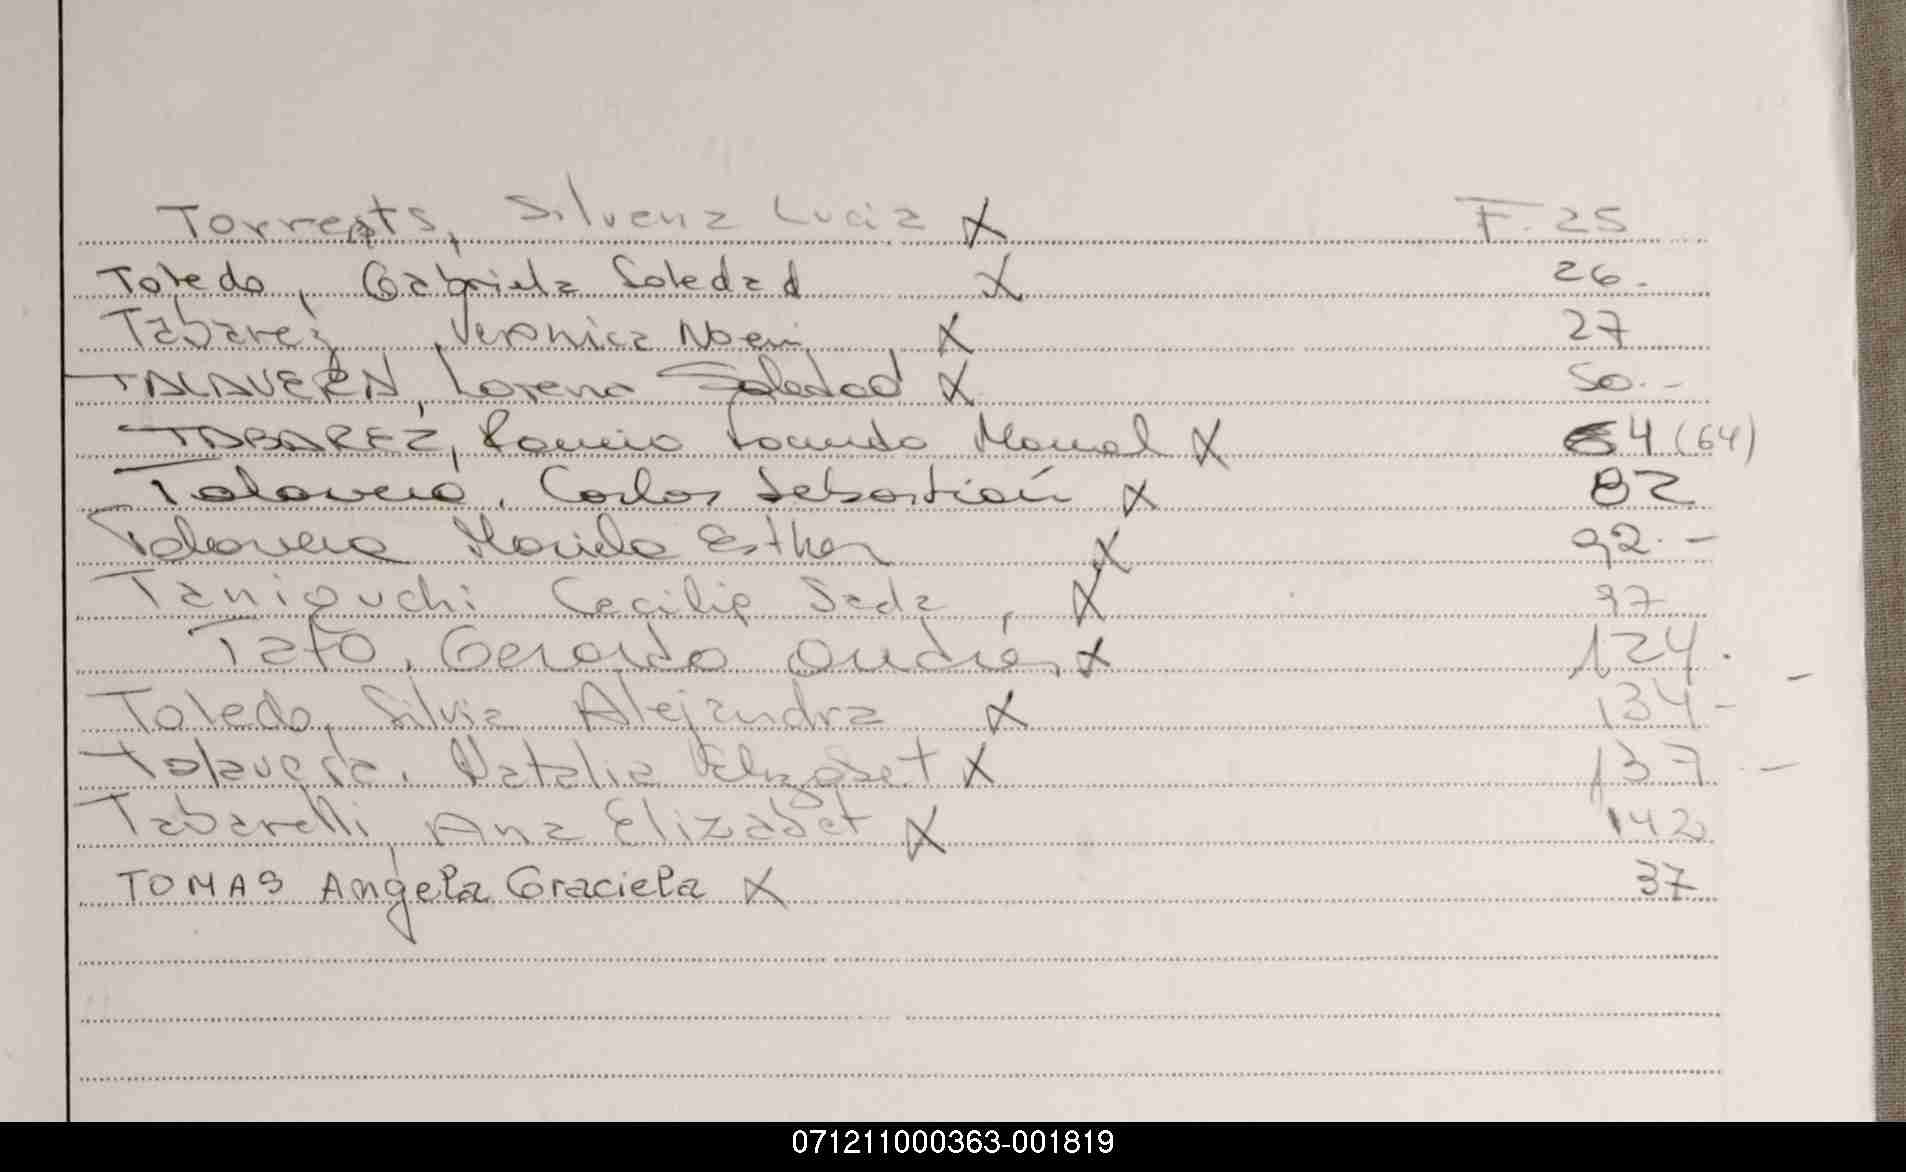 Torrents, Silvena Lucia X F. 25
Toledo, Gabriela Soledad X 26.
Tabarez, Veronica Noemi X 27
TALAVERA, Lorena Soledad X 50.-
TABAREZ, Facundo Manuel X 64 (64)
Talavera, Carlos Sebastián X 82
Talavera Mariela Esther X 92.-
Taniguchi Cecilia Sada, X 97
Tato, Gerardo Andrés, X 124.
Toledo, Silvia Alejandra X 134-
Talavera, Natalia Elizabet X 137 -
Tabarelli, Ana Elizabet X 142
TOMAS Angela Graciela X 37
071211000363-001819